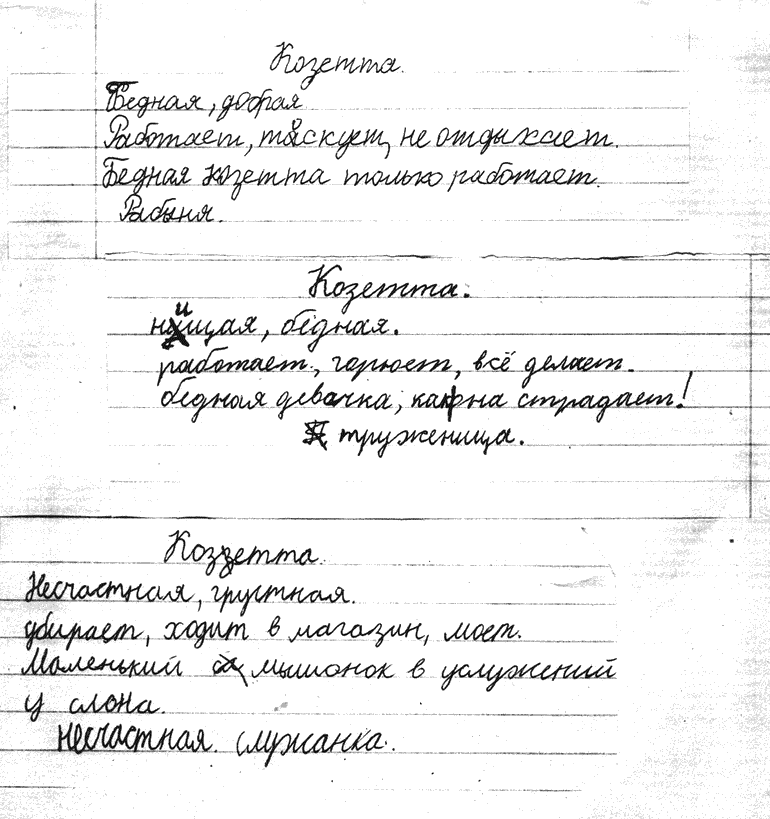 Козетта.
Бедная, добрая
Работает, тоскует, не отдыхает.
Бедная козетта только работает.
Рабыня.
Козетта.
нищая, бедная.
работает, горюет, всё делает.
бедная девочка, как она страдает!
труженица.
Козетта.
Несчастная, грустная.
убирает, ходит в магазин, моет.
Маленький мышонок в услужений
у слона.
несчастная служанка.